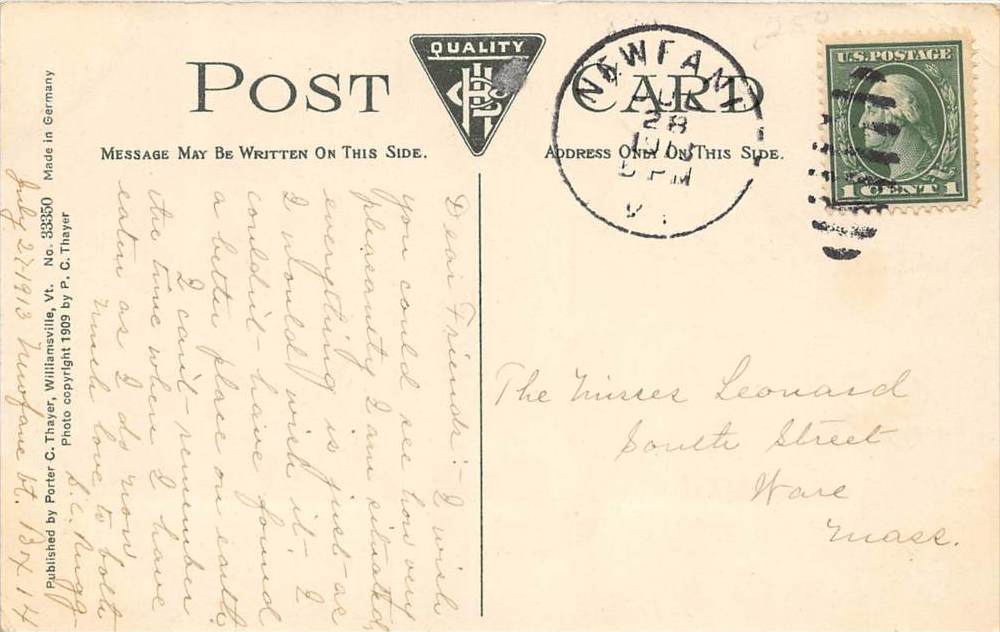 QUALITY
POST CARD
MESSAGE MAY BE WRITTEN ON THIS SIDE.
ADDRESS ONLY ON THIS SIDE.
NEWFANE
28
5 PM
U.S. POSTAGE
1 CENT 1
Dear Friends:- I wish
you could see how very
pleasantly I am situated,
everything is just as
I would wish it- I
couldn't have found
a better place on earth.
I can't remember
the time when I have
eaten as I do now.
Much love to both
S.C.
July 27 1913 Newfane Vt. Box 14
Published by Porter C. Thayer, Williamsville, Vt. No. 33350 Made in Germany
Photo copyright 1909 by P. C. Thayer
The Misses Leonard
South Street
Ware
Mass.